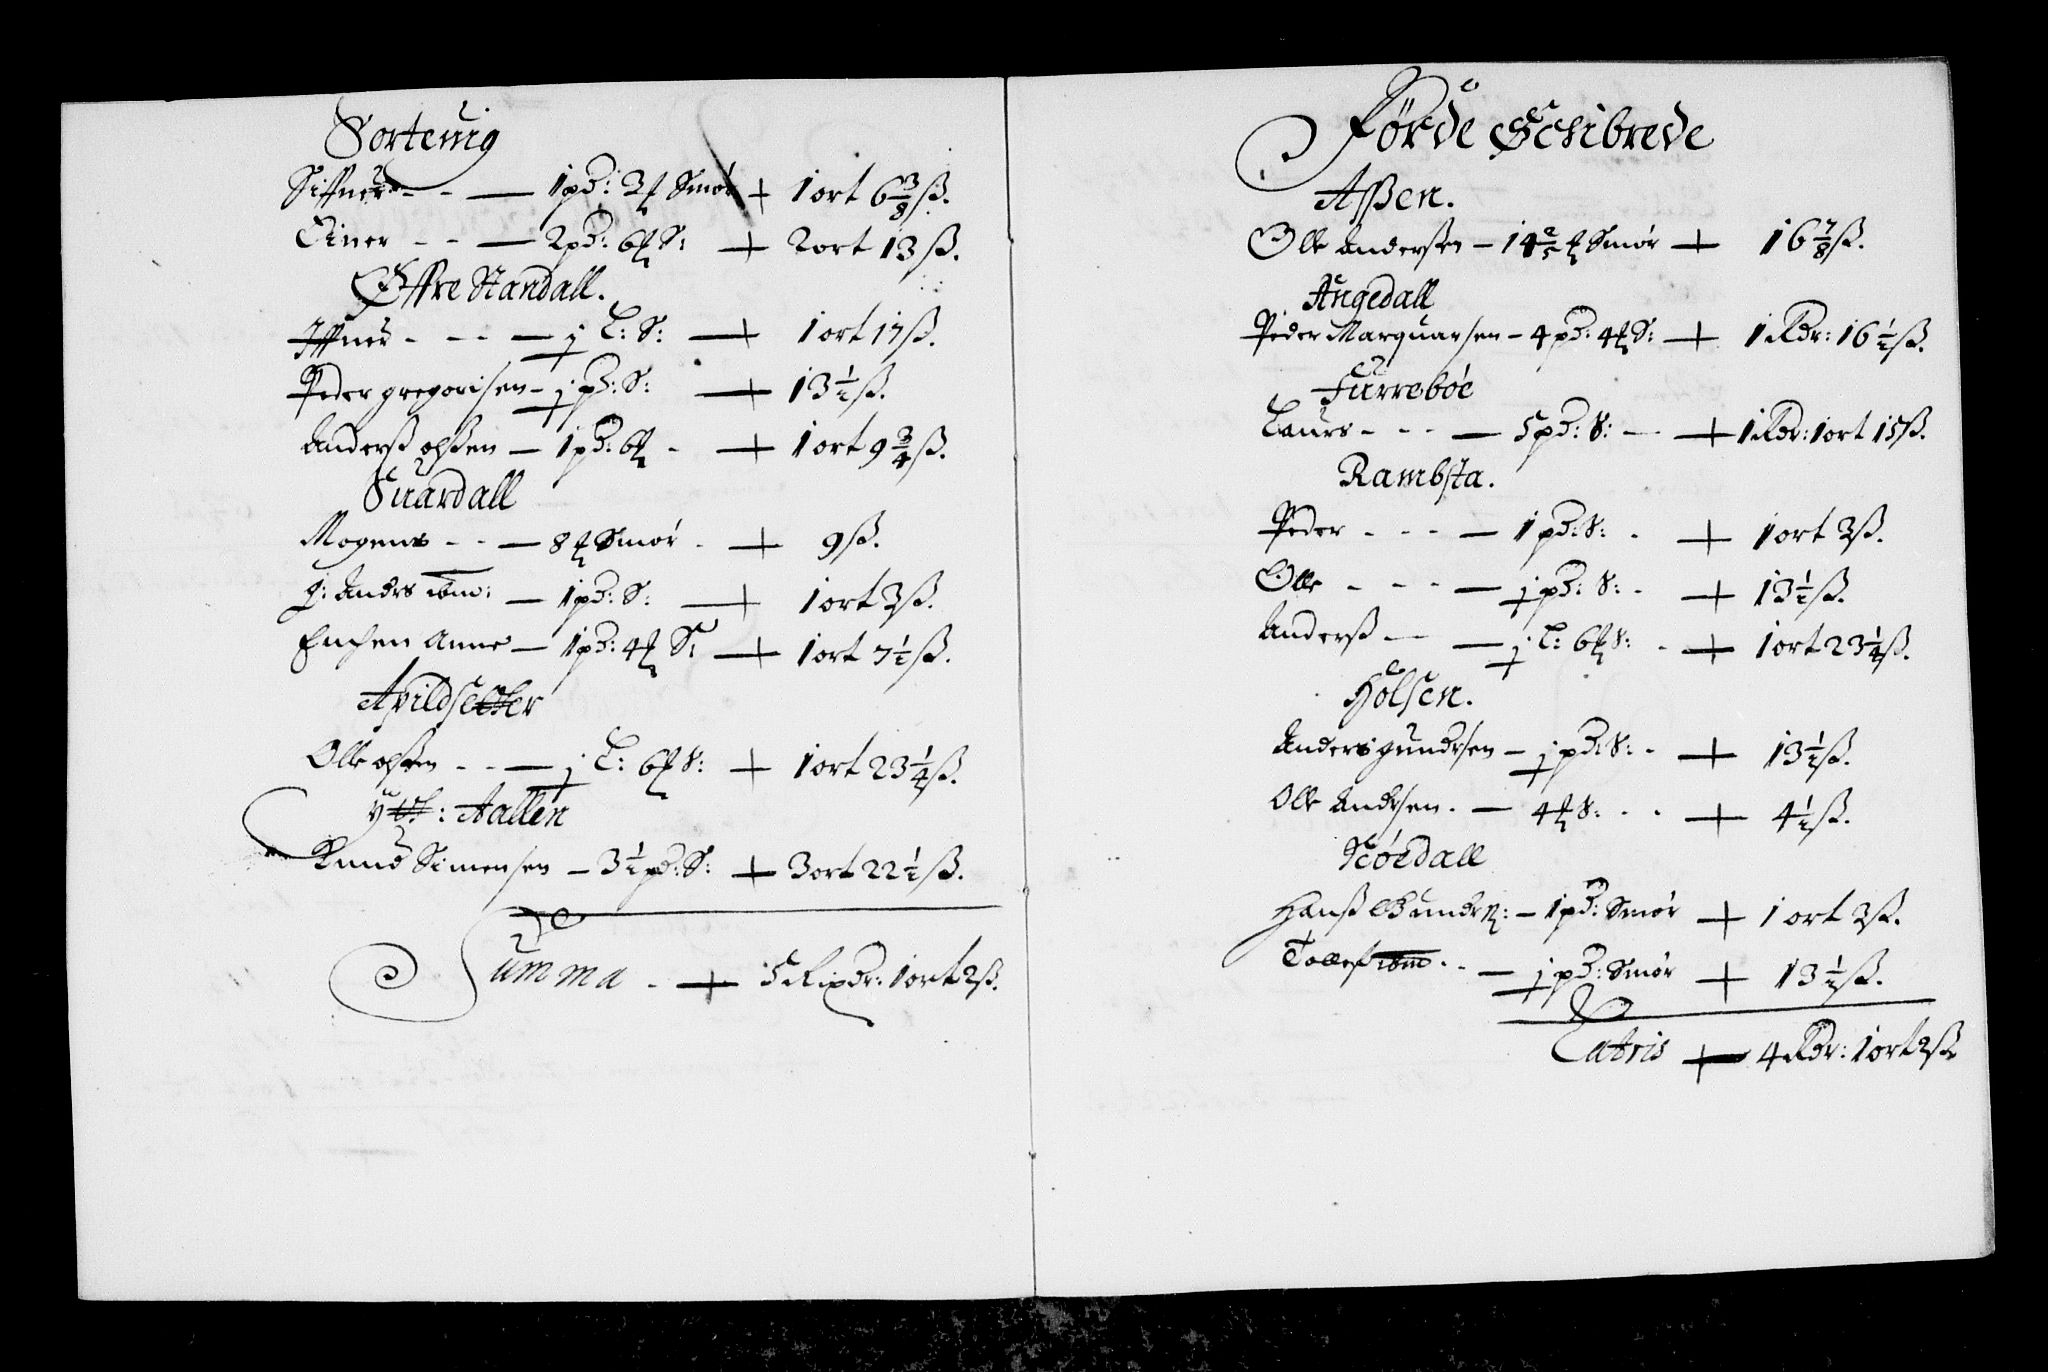 Sortevig
Siffuer - - — 1 pd: 3 ℔ Smør + 1 ort 6 3/8 ß.
Einer - - — 2 pd: 6 ℔ S: + 2 ort 13 ß.
Øffre Standall.
Iffuer - - - — j L: S: + 1 ort 17 ß.
Peder gregorisen - j pd: S: + 13 1/2 ß.
Anderß olßen — 1 pd: 6 ℔ - + 1 ort 9 3/4 ß.
Suardall
Mogens - - — 8 ℔ Smør - + 9 ß.
g: Anders ibm: — 1 pd: S: + 1 ort 3 ß.
Enchen Anne — 1 pd: 4 ℔ S: + 1 ort 7 1/2 ß.
Apildsetter
Olle olßen - - — j L: 6 ℔ S: + 1 ort 23 1/4 ß.
Aallen
Knud Simensen - 3 1/2 pd: S: + 3 ort 22 1/2 ß.
Summa - + 5 Ripdr: 1 ort 2 ß.
Førde Schibrede
Aßen.
Olle Anderßen - 14 2/5 ℔ Smør + 16 7/8 ß.
Angedall
Peder Marquarsen - 4 pd: 4 ℔ S: + 1 Rdr: 16 1/2 ß.
Furreboe
Laurs - - - — 5 pd: S: - + 1 Rdr: 1 ort 15 ß.
Rambsta.
Peder - - - — 1 pd: S: - + 1 ort 3 ß.
Olle - - - — j pd: S: - + 13 1/2 ß.
Anderß - - — j L: 6 ℔ S: - + 1 ort 23 1/4 ß.
Holsen.
Anders gundersen - j pd: S: - + 13 1/2 ß.
Olle Andersen. — 4 ℔ S: - - + 4 1/2 ß.
Nóedall
Hanß Gunders: - 1 pd: Smør + 1 ort 3 ß.
Tollef ibm - - — j pd: Smør + 13 1/2 ß.
Latris + 4 Rdr: 1 ort 3 ß